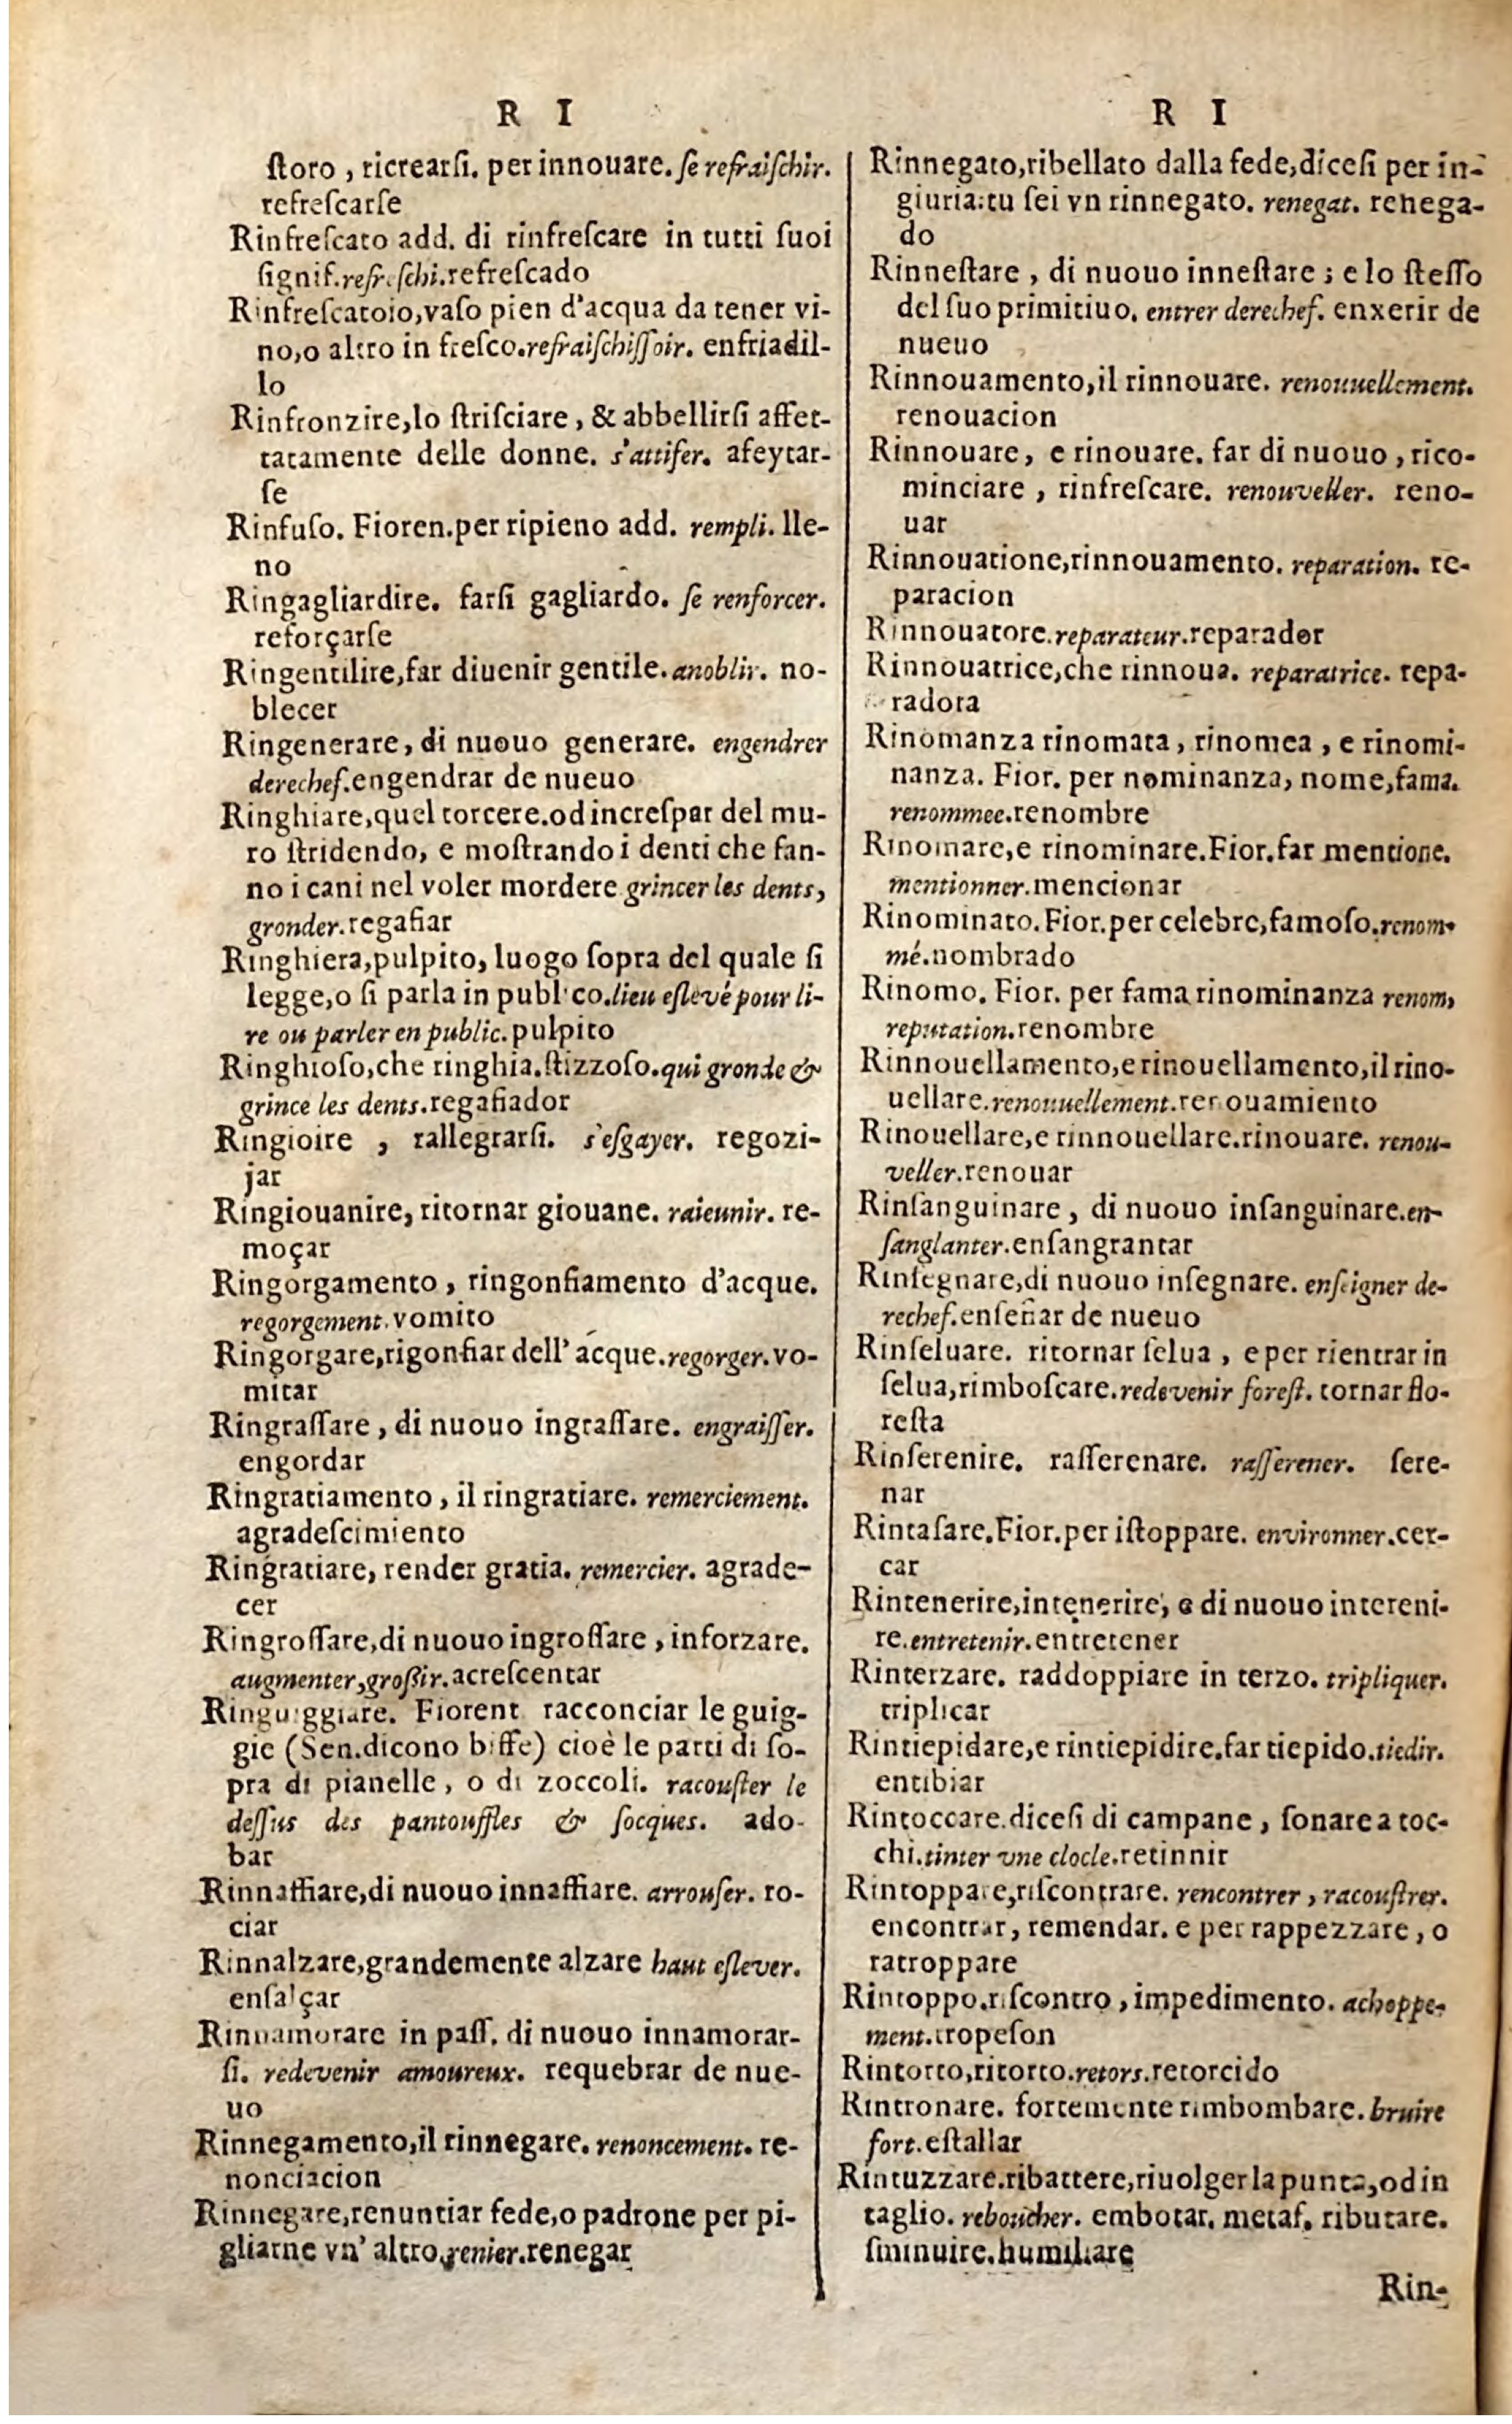 R I
ſtoro, ricrearſi. per innouare. ſe refraiſchir.
refreſcarſe
Rinfreſcato add. di rinfreſcare in tutti ſuoi
ſignif. refreſchi. refreſcado
Rinfreſcatoio, vaſo pien d'acqua da tener vi-
no, o altro in freſco. refraiſchiſſoir. enfriadil-
lo
Rinfronzire, lo ſtriſciare, & abbellirſi affet-
tatamente delle donne. s'attifer. afeytar-
ſe
Rinfuſo. Fioren. per ripieno add. rempli. lle-
no
Ringagliardire. farſi gagliardo. ſe renforcer.
reforçarſe
Ringentilire, far diuenir gentile. anoblir. no-
blecer
Ringenerare, di nuouo generare. engendrer
derechef. engendrar de nueuo
Ringhiare, quel torcere. od increſpar del mu-
ro ſtridendo, e moſtrando i denti che fan-
no i cani nel voler mordere grincer les dents,
gronder. regañar
Ringhiera, pulpito, luogo ſopra del quale ſi
legge, o ſi parla in publico. lieu eſlevé pour li-
re ou parler en public. pulpito
Ringhioſo, che ringhia. ſtizzoſo. qui gronde &
grince les dents. regañador
Ringioire, rallegrarſi. s'eſgayer. regozi-
jar
Ringiouanire, ritornar giouane. raieunir. re-
moçar
Ringorgamento, ringonfiamento d'acque.
regorgement. vomito
Ringorgare, rigonfiar dell' acque. regorger. vo-
mitar
Ringraſſare, di nuouo ingraſſare. engraiſſer.
engordar
Ringratiamento, il ringratiare. remerciement.
agradeſcimiento
Ringratiare, render gratia. remercier. agrade-
cer
Ringroſſare, di nuouo ingroſſare, inforzare.
augmenter, groſſir. acreſcentar
Ringuiggiare. Fiorent racconciar le guig-
gie (Sen. dicono biffe) cioè le parti di ſo-
pra di pianelle, o di zoccoli. racouſter le
deſſus des pantouffles & ſocques. ado-
bar
Rinnaffiare, di nuouo innaffiare. arrouſer. ro-
ciar
Rinnalzare, grandemente alzare haut eſlever.
enſalçar
Rinnamorare in paſſ. di nuouo innamorar-
ſi. redevenir amoureux. requebrar de nue-
uo
Rinnegamento, il rinnegare. renoncement. re-
nonciacion
Rinnegare, renuntiar fede, o padrone per pi-
gliarne vn' altro. renier. renegar
R I
Rinnegato, ribellato dalla fede, diceſi per in-
giuria: tu ſei vn rinnegato. renegat. renega-
do
Rinneſtare, di nuouo inneſtare; e lo ſteſſo
del ſuo primitiuo. entrer derechef. enxerir de
nueuo
Rinnouamento, il rinnouare. renouuellement.
renouacion
Rinnouare, e rinouare. far di nuouo, rico-
minciare, rinfreſcare. renouveller. reno-
uar
Rinnouatione, rinnouamento. reparation. re-
paracion
Rinnouatore. reparateur. reparador
Rinnouatrice, che rinnoua. reparatrice. repa-
radora
Rinomanza rinomata, rinomea, e rinomi-
nanza. Fior. per nominanza, nome, fama.
renommee. renombre
Rinomare, e rinominare. Fior. far mentione.
mentionner. mencionar
Rinominato. Fior. per celebre, famoſo. renom-
mé. nombrado
Rinomo. Fior. per fama rinominanza renom,
reputation. renombre
Rinnouellamento, e rinouellamento, il rino-
uellare. renouuellement. renouamiento
Rinouellare, e rinnouellare. rinouare. renou-
veller. renouar
Rinſanguinare, di nuouo inſanguinare. en-
ſanglanter. enſangrantar
Rinſegnare, di nuouo inſegnare. enſeigner de-
rechef. enſeñar de nueuo
Rinſeluare. ritornar ſelua, e per rientrar in
ſelua, rimboſcare. redevenir foreſt. tornar flo-
reſta
Rinſerenire. raſſerenare. raſſerener. ſere-
nar
Rintaſare. Fior. per iſtoppare. environner. cer-
car
Rintenerire, intenerire, e di nuouo intereni-
re. entretenir. entretener
Rinterzare. raddoppiare in terzo. tripliquer.
triplicar
Rintiepidare, e rintiepidire. far tiepido. tiedir.
entibiar
Rintoccare. diceſi di campane, ſonare a toc-
chi. tinter vne clocle. retinnir
Rintoppare, riſcontrare. rencontrer, racouſtrer.
encontrar, remendar. e per rappezzare, o
rattoppare
Rintoppo. riſcontro, impedimento. achoppe-
ment. tropeſon
Rintorto, ritorto. retors. retorcido
Rintronare. fortemente rimbombare. bruire
fort. eſtallar
Rintuzzare. ribattere, riuolger la punta, od in
taglio. reboucher. embotar. metaf. ributare.
ſminuire. humiliare
Rin-